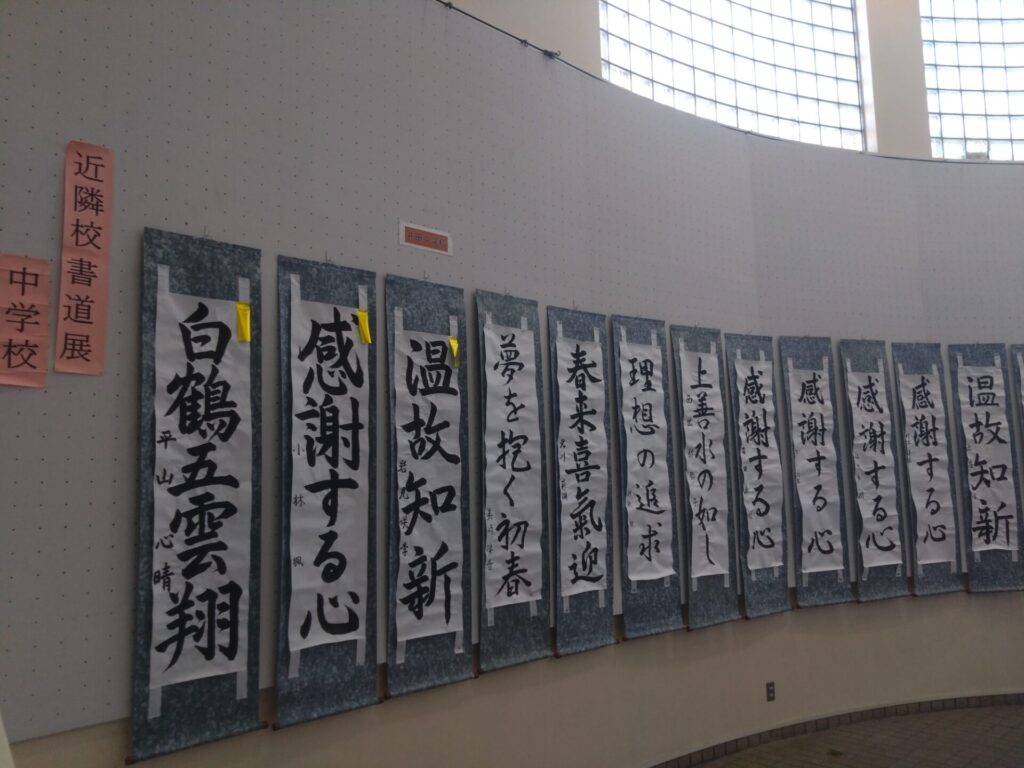 近隣校書道展
中学校
白鶴五雲翔
平山心晴
感謝する心
小林楓
温故知新
夢を抱く初春
春来喜氣迎
理想の追求
上善水の如し
感謝する心
感謝する心
感謝する心
感謝する心
温故知新